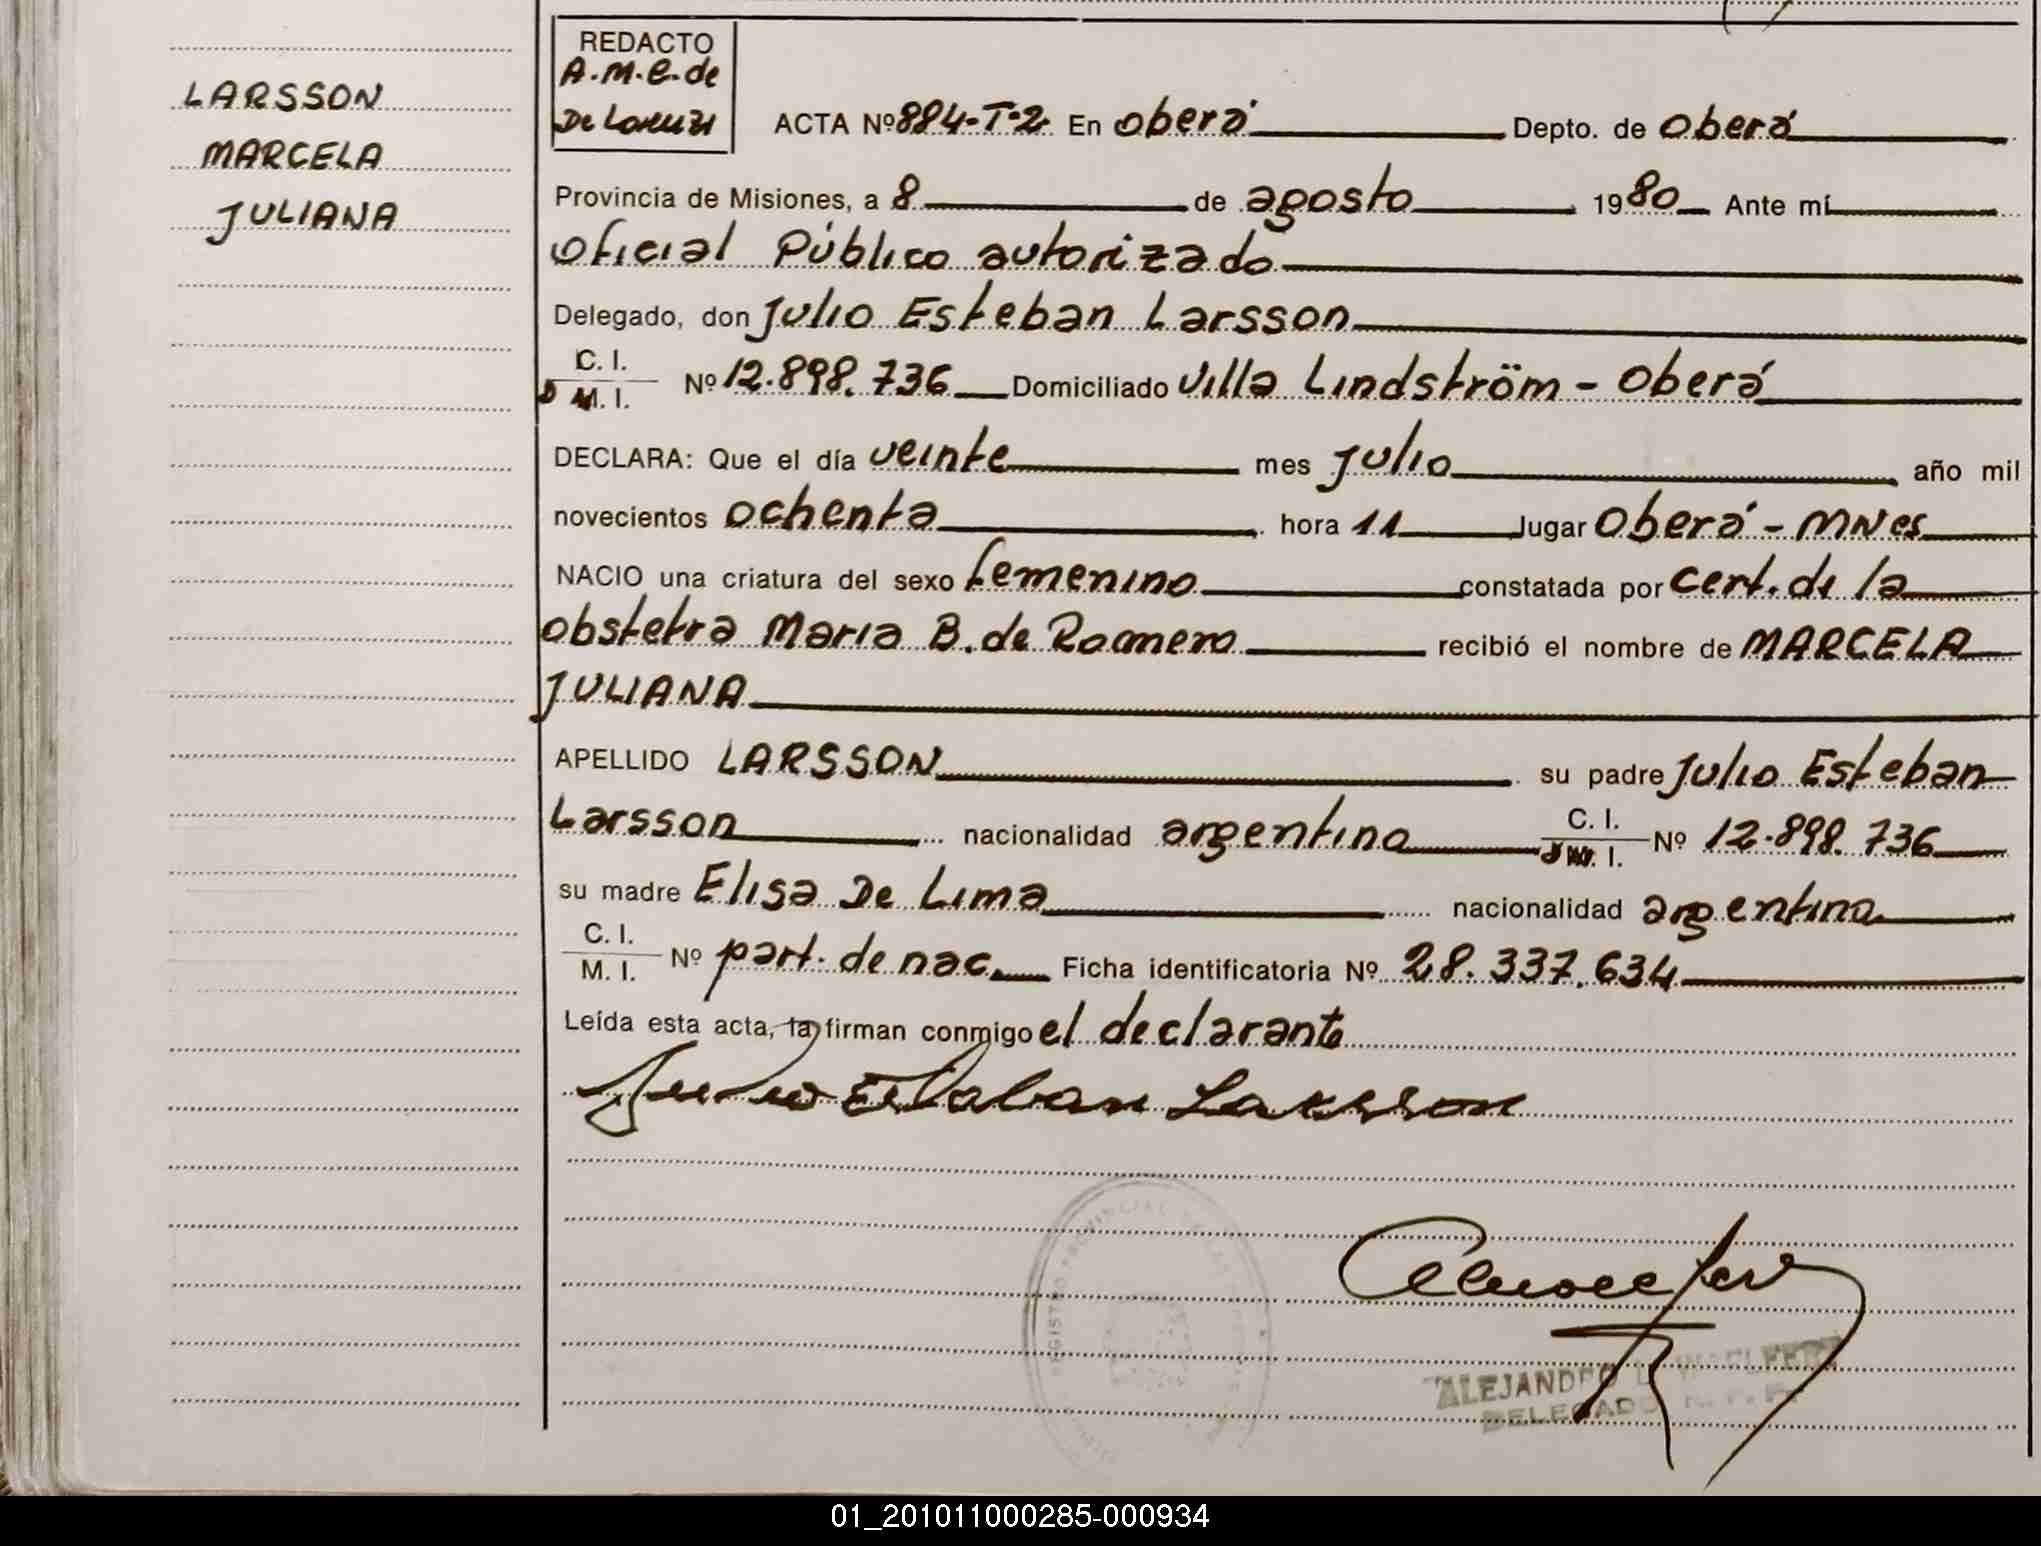 LARSSON
MARCELA
JULIANA
REDACTO
A.M.E. de
De Lorenzi
ACTA Nº 884-T-2 En Oberá Depto. de Oberá
Provincia de Misiones, a 8 de agosto 1980 Ante mí
Oficial Público autorizado
Delegado, don Julio Esteban Larsson
C. I.
D M. I. Nº 12.898.736 Domiciliado Villa Lindström - Oberá
DECLARA: Que el día veinte mes julio año mil
novecientos ochenta hora 11 lugar Oberá - MNes
NACIO una criatura del sexo femenino constatada por cert. de la
obstetra Maria B. de Romero recibió el nombre de MARCELA
JULIANA
APELLIDO LARSSON su padre Julio Esteban
Larsson nacionalidad argentina C. I.
M. I. Nº 12.898.736
su madre Elisa De Lima nacionalidad argentina
C. I.
M. I. Nº part. de nac. Ficha identificatoria Nº 28.337.634
Leída esta acta, la firman conmigo el declarante
Julio Esteban Larsson
REGISTRO PROVINCIAL DE LAS
ALEJANDRO
DELEGADO R. P. P.
01_201011000285-000934